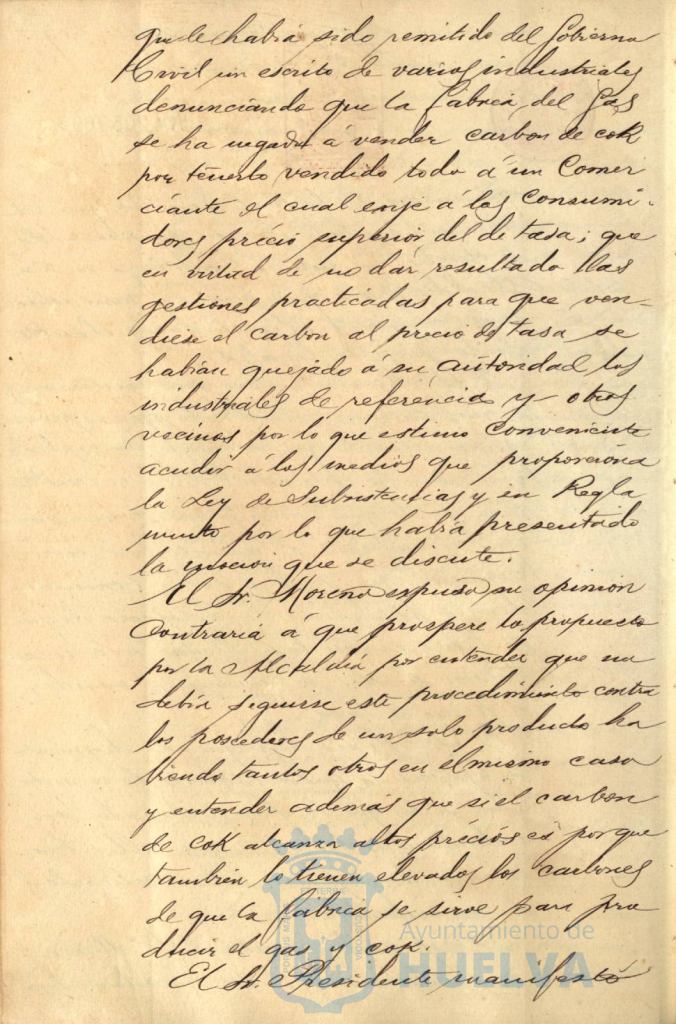 que le habia sido remitido del Gobierno
Civil un escrito de varios industriales
denunciando que la fabrica del Gas
se ha negado á vender carbon de cok
por tenerlo vendido todo á un Comer
ciante el cual exije á los consumi-
dores précio superior del de tasa; que
en virtud de no dár resultado las
gestiones practicadas para que ven-
diese el carbon al precio de tasa se
habian quejado á su autoridad los
industriales de referencia y otros
vecinos por lo que estimó conveniente
acudir á los medios que proporciona
la Ley de Subsistencias y su Regla
mento por lo que habia presentado
la mocion que se discute.
El Sr. Moreno expuso su opinion
Contraria á que prospere lo propuesto
por la Alcaldia por entender que no
debia seguirse este procedimiento contra
los poseedores de un solo producto ha
biendo tantos otros en el mismo caso
y entender además que si el carbon
de cok alcanza altos précios es por que
tambien lo tienen elevados los carbones
de que la fabrica se sirve para pro
ducir el gas y cok.
El Sr. Presidente manifestó
Ayuntamiento de
HUELVA